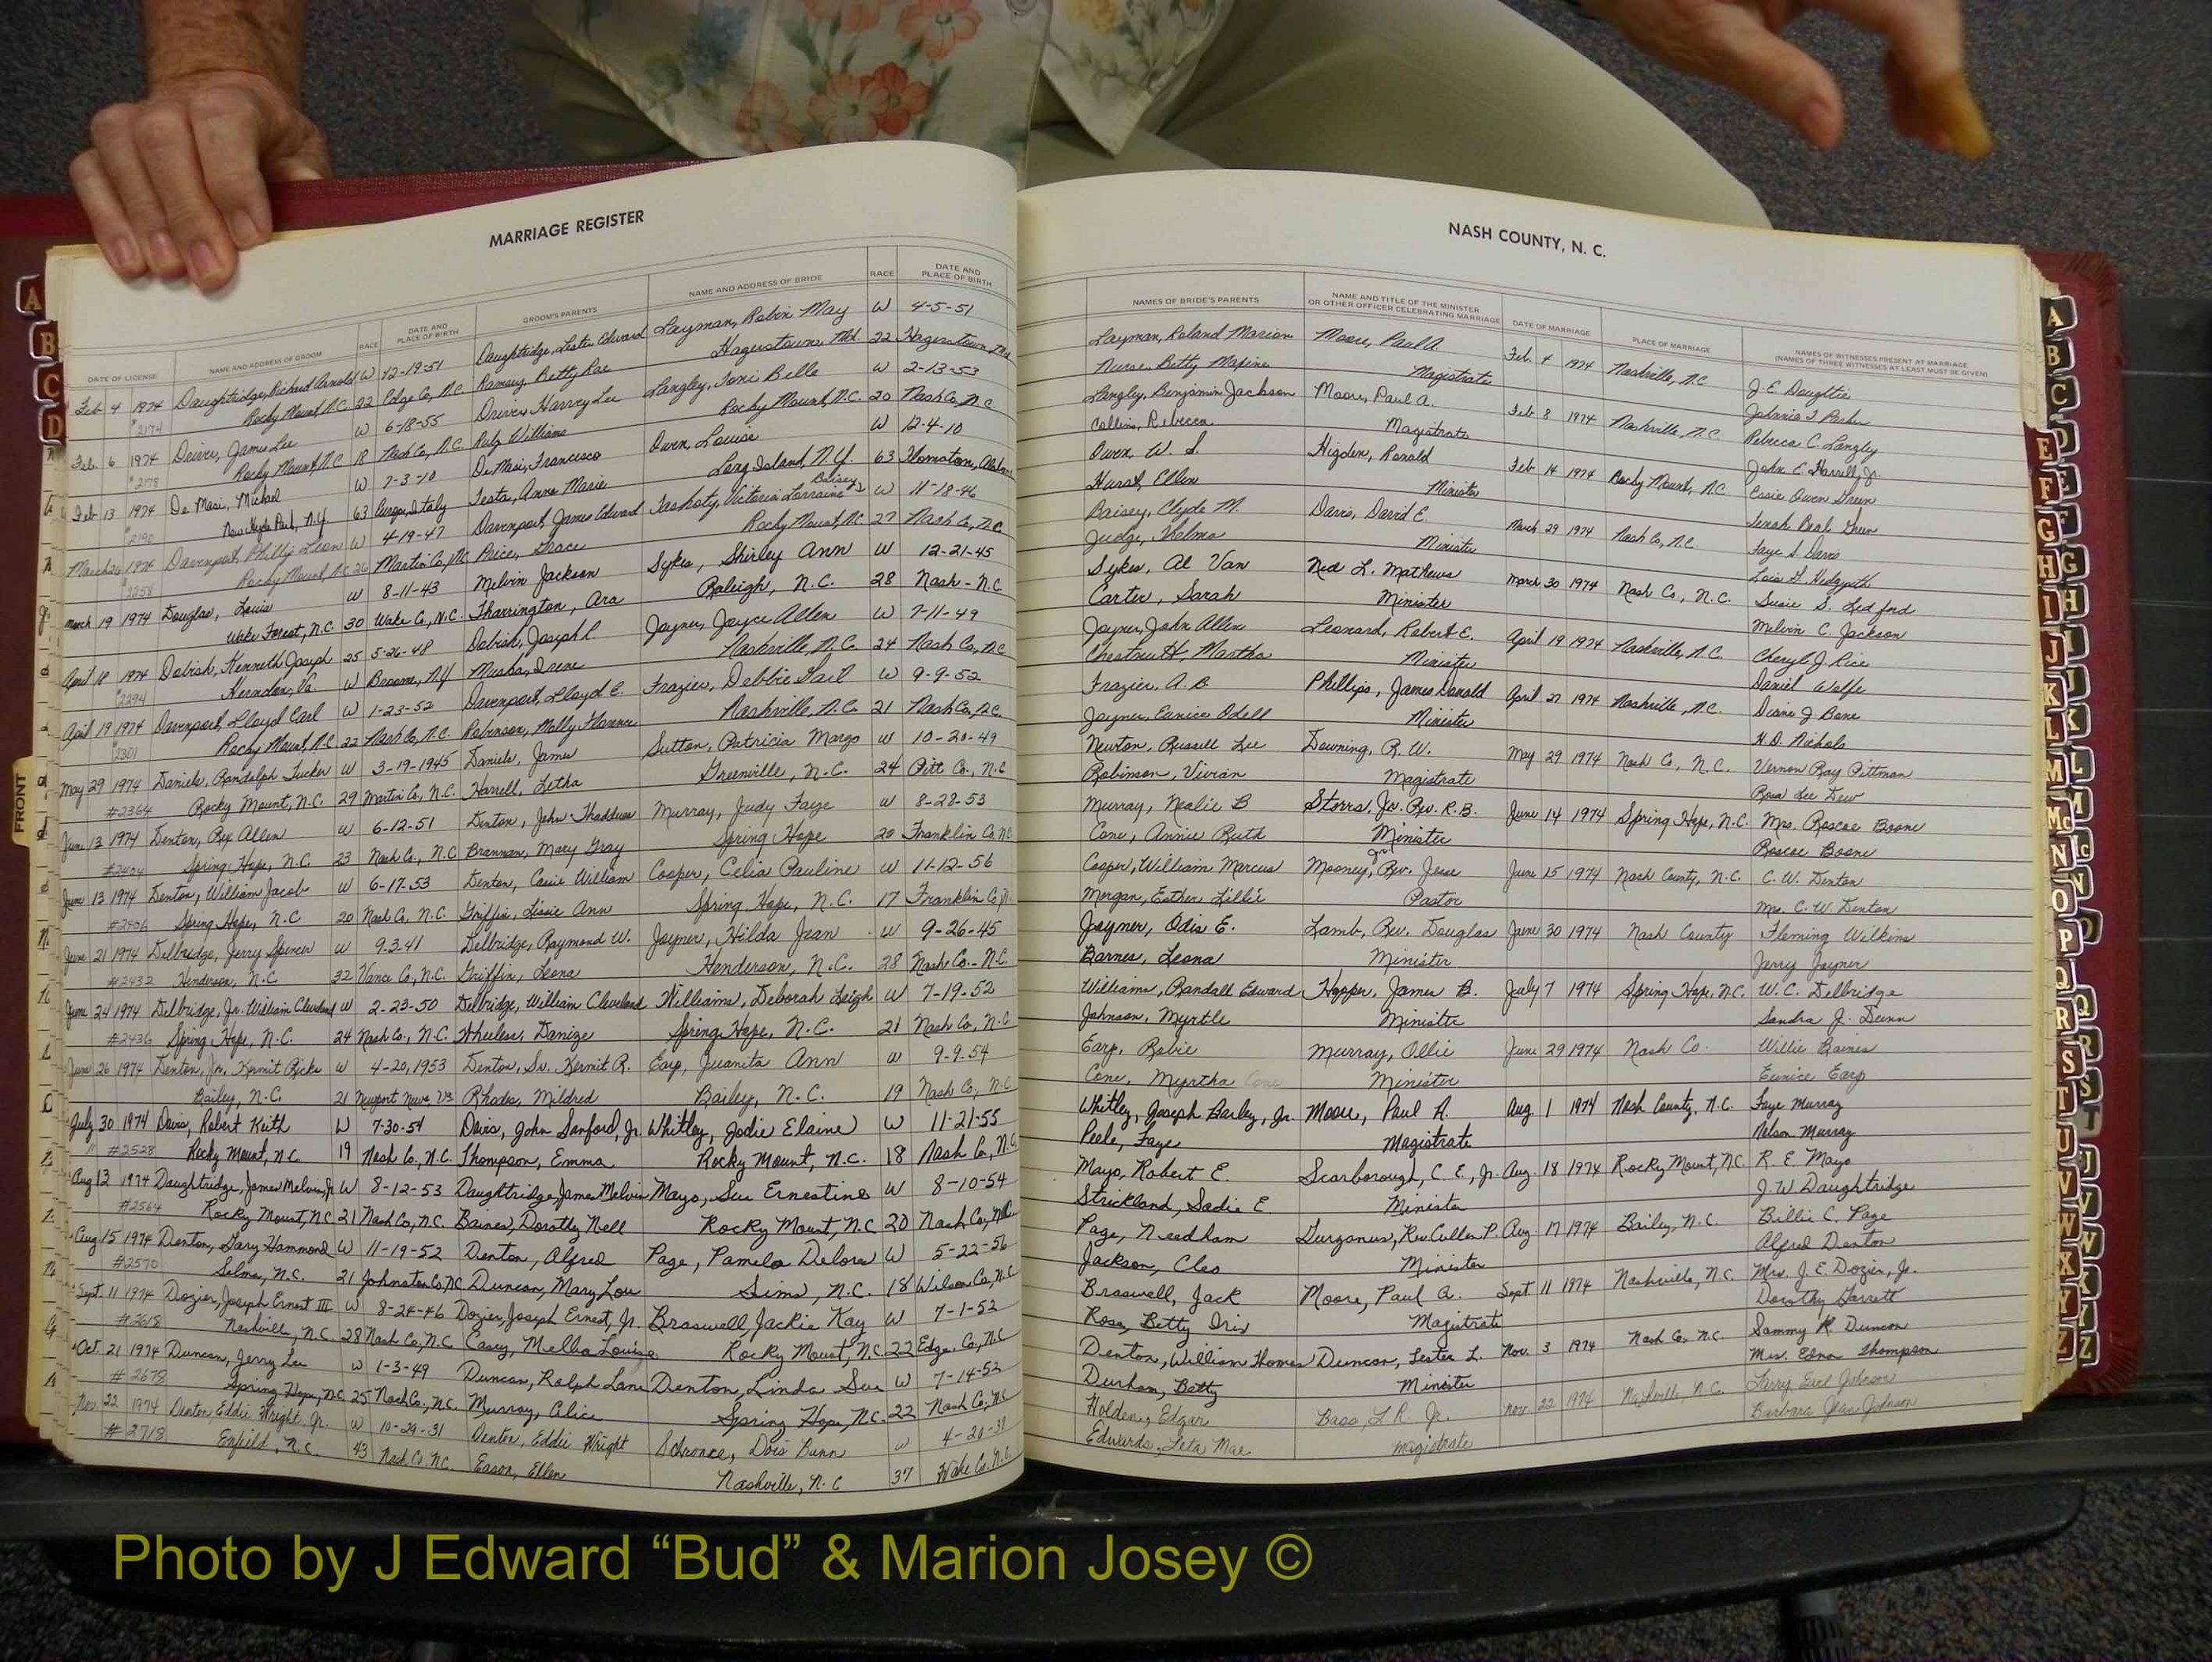 MARRIAGE REGISTER
DATE OF LICENSE NAME AND ADDRESS OF GROOM RACE DATE AND PLACE OF BIRTH GROOM'S PARENTS NAME AND ADDRESS OF BRIDE RACE DATE AND PLACE OF BIRTH
Feb 4 1974 Daughtridge, Richard Arnold W 12-19-51 Daughtridge, Lester Edward Layman, Robin May W 4-5-51
#2174 Rocky Mount, N.C. 22 Edge Co, N.C. Ramsey, Betty Rae Hagerstown, Md. 22 Hagerstown, Md
Feb. 6 1974 Driver, James Lee W 6-18-55 Driver, Harvey Lee Langley, Toni Belle W 2-13-53
#2178 Rocky Mount, N.C. 18 Nash Co, N.C. Williams Rocky Mount, N.C. 20 Nash Co, N.C
Feb 13 1974 De Masi, Michael W 7-3-10 De Masi, Francisco Owen, Louise W 12-4-10
#2190 New Hyde Park, N.Y. 63 Italy Testa, Anna Marie Long Island, N.Y. 63
March 26 1974 Davenport, Phillip Leon W 4-19-47 Davenport, James Edward Victoria Lorraine Baisey W 11-18-46
Rocky Mount, N.C. 26 Martin Co, N.C. Price, Grace Rocky Mount, N.C. 27 Nash Co, N.C.
March 19 1974 Douglas, Louis W 8-11-43 Melvin Jackson Sykes, Shirley Ann W 12-21-45
Wake Forest, N.C. 30 Wake Co, N.C. Tharrington, Ara Raleigh, N.C. 28 Nash - N.C.
April 18 1974 Dobish, Kenneth Joseph 25 5-26-48 Dobish, Joseph P. Joyner, Joyce Allen W 7-11-49
#2294 Herndon, Va. W Broome, N.Y. Irene Nashville, N.C. 24 Nash Co, N.C
April 19 1974 Davenport, Lloyd Earl W 1-23-52 Davenport, Lloyd E. Frazier, Debbie Gail W 9-9-52
2301 Rocky Mount, N.C. 22 Nash Co, N.C. Robinson, Molly Florence Nashville, N.C. 21 Nash Co, N.C.
May 29 1974 Daniels, Randolph Tucker W 3-19-1945 Daniels, James Sutton, Patricia Margo W 10-20-49
#2364 Rocky Mount, N.C. 29 Martin Co, N.C. Harrell, Letha Greenville, N.C. 24 Pitt Co., N.C
June 13 1974 Denton, Rex Allen W 6-12-51 Denton, John Thaddeus Murray, Judy Faye W 8-28-53
#2404 Spring Hope, N.C. 23 Nash Co., N.C. Brannan, Mary Gray Spring Hope 20 Franklin Co, N.C.
June 13 1974 Denton, William Jacob W 6-17-53 Denton, Cassie William Cooper, Celia Pauline W 11-12-56
#2406 Spring Hope, N.C. 20 Nash Co, N.C. Griffin, Lissie Ann Spring Hope, N.C. 17 Franklin Co,
June 21 1974 Delbridge, Jerry Spencer W 9-3-41 Delbridge, Raymond W. Joyner, Hilda Jean W 9-26-45
#2432 Henderson, N.C. 32 Vance Co, N.C. Griffin, Leona Henderson, N.C. 28 Nash Co.- N.C.
June 24 1974 Delbridge, Jr. William Cleveland W 2-23-50 Delbridge, William Cleveland Williams, Deborah Leigh W 7-19-52
#2436 Spring Hope, N.C. 24 Nash Co., N.C. Wheeless, Danize Spring Hope, N.C. 21 Nash Co, N.C
June 26 1974 Denton, Jr. Kermit Ricks W 4-20, 1953 Denton, Sr. Kermit R. Earp, Juanita Ann W 9-9-54
Bailey, N.C. 21 Newport News, Va Rhodes, Mildred Bailey, N.C. 19 Nash Co., N.C
July 30 1974 Davis, Robert Keith W 7-30-54 Davis, John Sanford, Jr. Whitley, Jodie Elaine W 11-21-55
#2528 Rocky Mount, N.C. 19 Nash Co, N.C. Thompson, Emma Rocky Mount, N.C. 18 Nash Co, N.C.
Aug 13 1974 Daughtridge, James Melvin, Jr W 8-12-53 Daughtridge, James Melvin Mayo, Sue Ernestine W 8-10-54
#2564 Rocky Mount, N.C 21 Nash Co, N.C. Baines, Dorothy Nell Rocky Mount, N.C 20 Nash Co, N.C.
Aug 15 1974 Denton, Gary Hammond W 11-19-52 Denton, Alfred Page, Pamela Delores W 5-22-56
#2570 Selma, N.C. 21 Johnston Co, N.C Duncan, Mary Lou Sims, N.C. 18 Wilson Co, N.C
Sept. 11 1974 Dozier, Joseph Ernest III W 8-24-46 Dozier, Joseph Ernest, Jr. Braswell, Jackie Kay W 7-1-52
#2618 Nashville, N.C. 28 Nash Co, N.C Casey, Melba Louise Rocky Mount, N.C. 22 Edge. Co, N.C
Oct. 21 1974 Duncan, Jerry Lee W 1-3-49 Duncan, Ralph Lane Denton, Linda Sue W 7-14-52
#2678 Spring Hope, N.C. 25 Nash Co., N.C. Murray, Alice Spring Hope, N.C. 22 Nash Co, N.C
Nov. 22 1974 Denton Eddie Wright, Jr. W 10-29-31 Denton, Eddie Wright Schronce, Dois Bunn W 4-20-37
#2718 Enfield, N.C. 43 Nash Co. N.C. Eason, Ellen Nashville, N.C 37 Wake Co. N.C.
NASH COUNTY, N. C.
NAMES OF BRIDE'S PARENTS NAME AND TITLE OF THE MINISTER OR OTHER OFFICER CELEBRATING MARRIAGE DATE OF MARRIAGE PLACE OF MARRIAGE NAMES OF WITNESSES PRESENT AT MARRIAGE (NAMES OF THREE WITNESSES AT LEAST MUST BE GIVEN)
Layman, Roland Marion Moore, Paul A. Feb. 4 1974 Nashville, N.C J. E. Daughtie
Nurse, Betty Maxine Magistrate Johnnie T. Parker
Langley, Benjamin Jackson Moore, Paul A. Feb 8 1974 Nashville, N.C. Rebecca C. Langley
Collins, Rebecca Magistrate John E. Harrell, Jr.
Owen, W. S. Higdon, Ronald Feb 14 1974 Rocky Mount, N.C Essie Owen Green
Hurst, Ellen Minister Green
Baisey, Clyde M. Davis, David E. March 29 1974 Nash Co, N.C. Faye S. Davis
Judge, Thelma Minister Lois H. Hedgpeth
Sykes, Al Van Ned L. Mathews March 30 1974 Nash Co, N.C. Susie S. Ledford
Carter, Sarah Minister Melvin C. Jackson
Joyner, John Allen Leonard, Robert E. April 19 1974 Nashville, N.C. Cheryl J. Rice
Chestnutt, Martha Minister Daniel Wolfe
Frazier, A. B Phillips, James Donald April 27 1974 Nashville, N.C. Diane J. Bone
Joyner, Eunice Odell Minister H. D. Nichols
Newton, Russell Lee Downing, R. W. May 29 1974 Nash Co, N.C. Vernon Ray Pittman
Robinson, Vivian Magistrate Rosa Lee Dew
Murray, Nealie B Storrs, Jr. Rev. R.B. June 14 1974 Spring Hope, N.C. Mrs. Roscoe Boone
Cone, Annie Ruth Minister Roscoe Boone
Cooper, William Marcus Mooney, Jr. Rev. Jesse June 15 1974 Nash County, N.C. C. W. Denton
Morgan, Esther Lillie Pastor Mrs. C. W. Denton
Joyner, Odis E. Lamb, Rev. Douglas June 30 1974 Nash County Fleming Wilkins
Barnes, Leona Minister Jerry Joyner
Williams, Randall Edward Hopper, James B. July 7 1974 Spring Hope, N.C. W. C. Delbridge
Johnson, Myrtle Minister Sandra J. Dunn
Earp, Robie Murray, Ollie June 29 1974 Nash Co. Willie Baines
Cone, Myrtha Cone Minister Eunice Earp
Whitley, Joseph Barley, Jr. Moore, Paul A. Aug 1 1974 Nash County, N.C. Faye Murray
Peele, Faye Magistrate Nelson Murray
Mayo, Robert E. Scarborough, C. E., Jr. Aug. 18 1974 Rocky Mount, N.C. R. E. Mayo
Strickland, Sadie E Minister J. W. Daughtridge
Page, Needham Gurganus, Rev. Cullen P. Aug. 17 1974 Bailey, N.C. Billie C. Page
Jackson, Cleo Minister Alfred Denton
Braswell, Jack Moore, Paul A. Sept 11 1974 Nashville, N.C. Mrs. J. E. Dozier, Jr.
Rose, Betty Iris Magistrate Dorothy Garrett
Denton, William Thomas Duncan, Lester L. Nov. 3 1974 Nash Co. N.C. Sammy R. Duncan
Durham, Betty Minister Mrs. Edna Thompson
Holden, Edgar Bass, L. R. Jr. Nov. 22 1974 Nashville, N.C. Larry Earl Johnson
Edwards, Leta Mae Magistrate Barbara Jean Johnson
FRONT
A
B
C
D
E
F
G
H
I
J
K
L
M
Mc
N
O
P
Q
R
S
T
U
V
W
X
Y
Z
Photo by J Edward “Bud” & Marion Josey ©